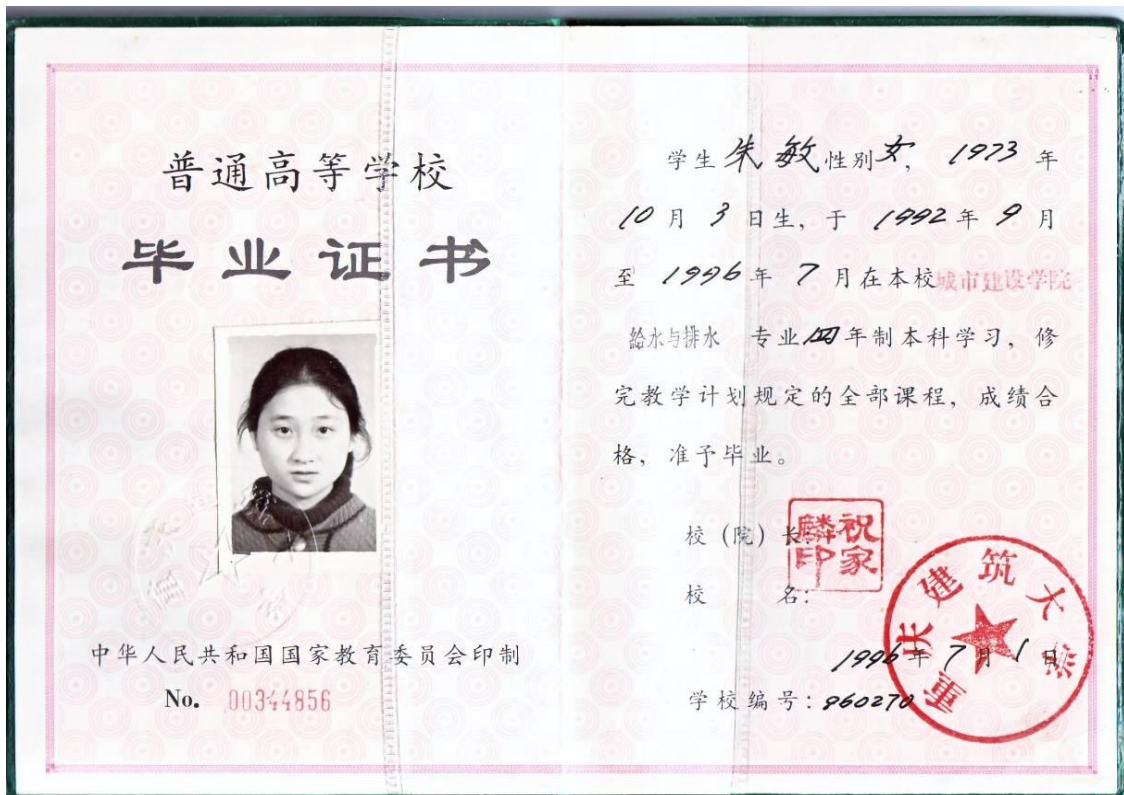 普通高等学校
毕业证书
中华人民共和国国家教育委员会印制
No. 00344856
学生 朱敏 性别 女, 1973 年
10 月 3 日生, 于 1992 年 9 月
至 1996 年 7 月在本校 城市建设学院
給水与排水 专业 四 年制本科学习, 修
完教学计划规定的全部课程, 成绩合
格, 准予毕业。
校（院）长:
祝家麟印
校 名:
重庆建筑大学
1996 年 7 月 1 日
学校编号: 960270